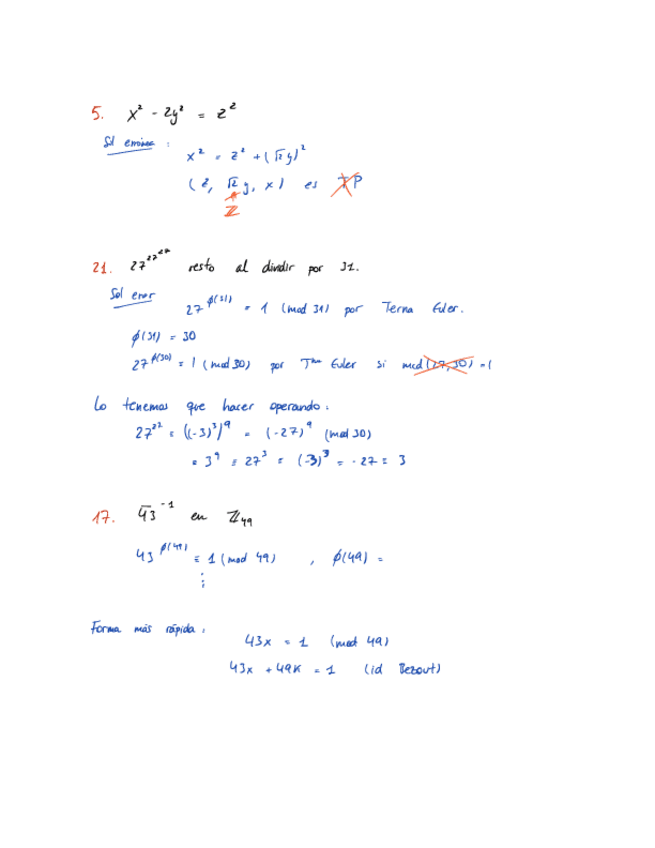 5. x² - 2y² = z²
Sol errónea :
x² = z² + (√2 y)²
(z, √2 y, x) es TP
ℤ
21. 27^27^27^27 resto al dividir por 31.
Sol error
27^ϕ(31) ≡ 1 (mod 31) por Teorema Euler.
ϕ(31) = 30
27^ϕ(30) ≡ 1 (mod 30) por Tma Euler si mcd (27,30) = 1
Lo tenemos que hacer operando :
27²⁷ ≡ ((-3)³)⁹ ≡ (-27)⁹ (mod 30)
≡ 3⁹ ≡ 27³ ≡ (-3)³ ≡ -27 ≡ 3
17. 43⁻¹ en ℤ₄₉
43^ϕ(49) ≡ 1 (mod 49) , ϕ(49) =
⋮
Forma más rápida :
43x ≡ 1 (mod 49)
43x + 49k = 1 (id Bezout)